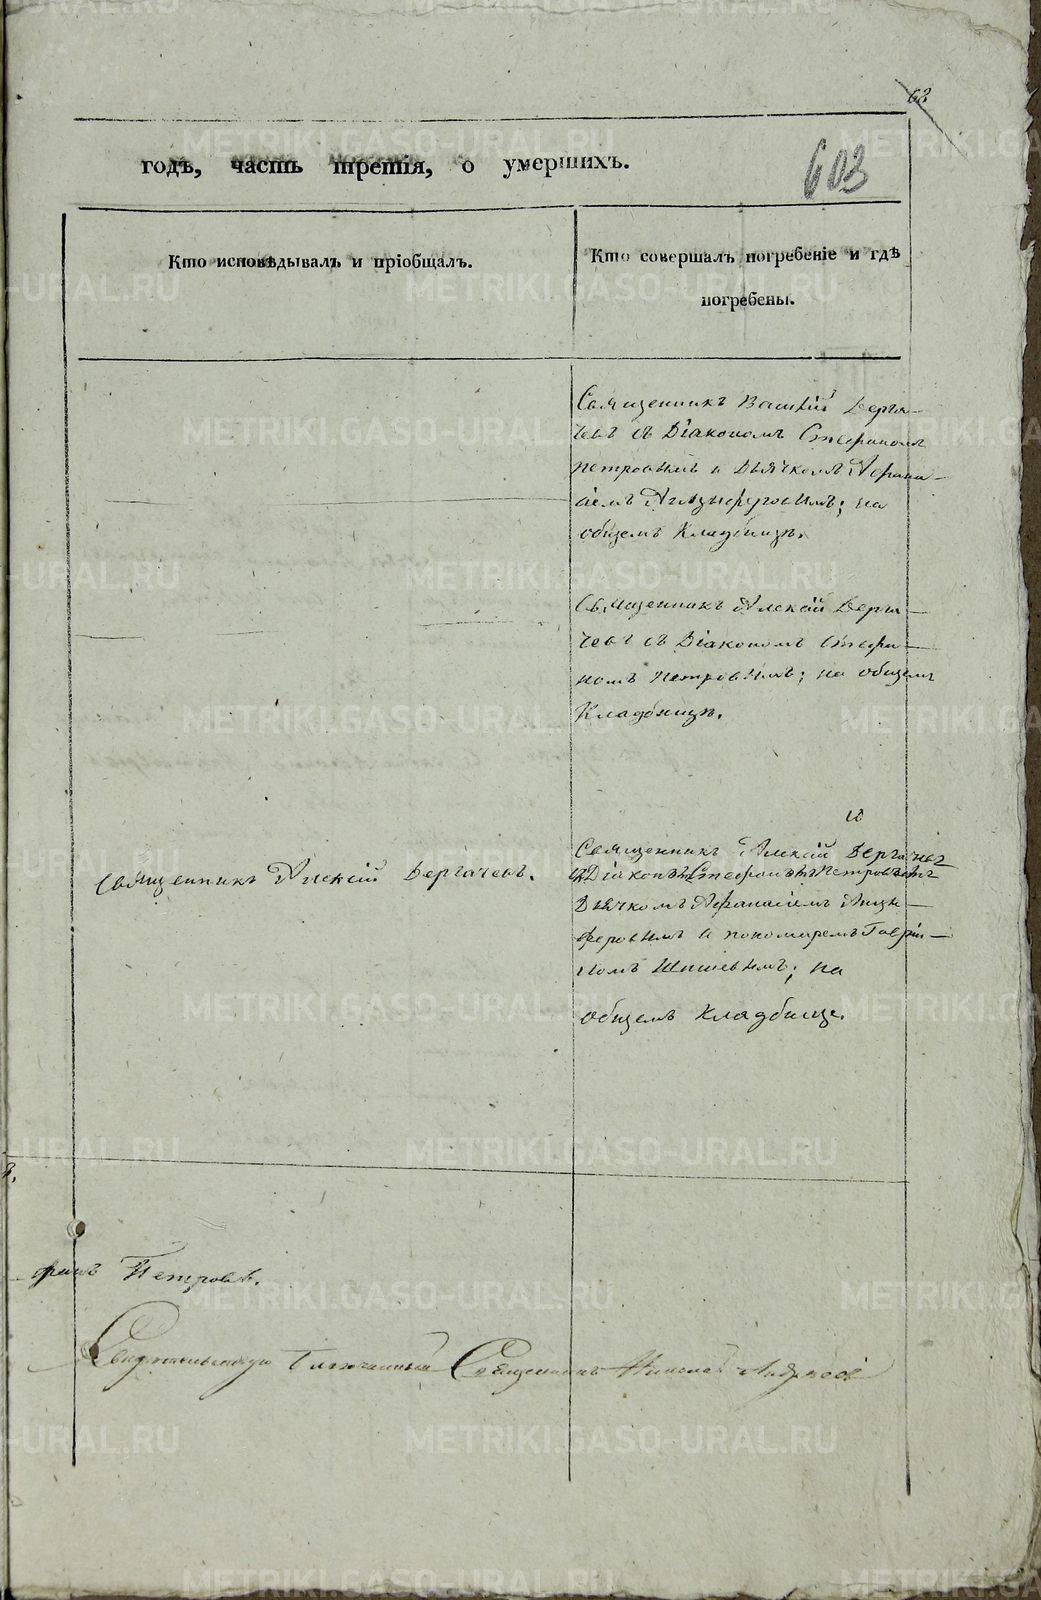 62
603
годъ, часть третія, о умершихъ.
Кто исповѣдывалъ и пріобщалъ.
Кто совершалъ погребеніе и гдѣ
погребены.
Священникъ Дерга-
чевъ съ Діакономъ Стефаномъ
петровымъ и Дьячкомъ Афана-
сіемъ на
общемъ Кладбищѣ.
Священникъ Алексій Дерга-
чевъ съ Діакономъ Стефа-
номъ Петровымъ; на общемъ
Кладбищѣ.
Священникъ Алексій Дергачевъ.
ю
Священникъ Алексій Дергачев
Діаконъ Стефанъ Петровъ
Дьячкомъ Афанасіемъ
феровымъ и пономаремъ Гаврі-
ломъ Шишевымъ; на
общемъ кладбище.
фанъ Петровъ.
Священникъ Николай Андреев
METRIKI.GASO-URAL.RU